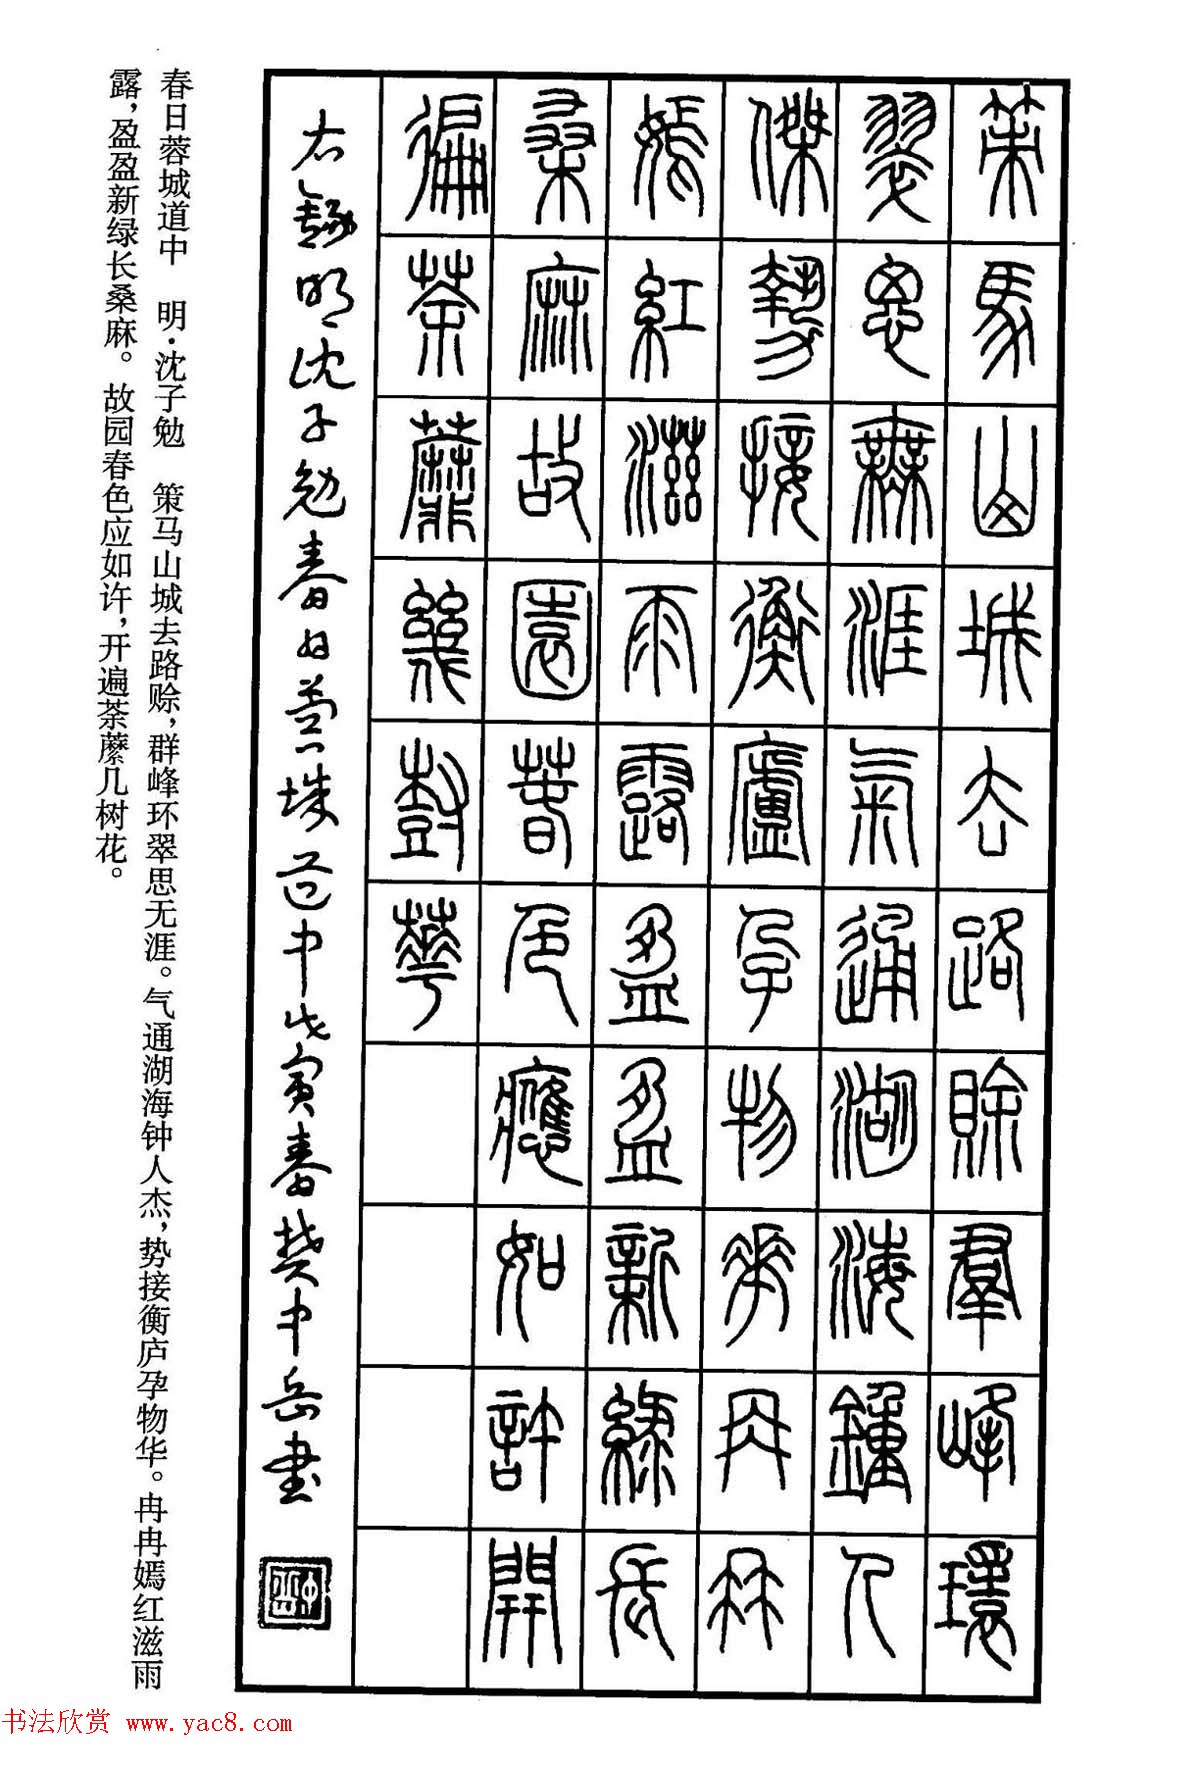 策馬山城去路賒羣峰環
翠思無涯氣通湖海鐘人
傑勢接衡廬孕物華冉冉
嫣紅滋雨露盈盈新綠長
桑麻故園春色應如許開
徧荼蘼幾樹華
右錄明沈子勉春日蓉城道中戊寅春樊中岳書
春日蓉城道中 明·沈子勉 策马山城去路赊，群峰环翠思无涯。气通湖海钟人杰，势接衡庐孕物华。冉冉嫣红滋雨
露，盈盈新绿长桑麻。故园春色应如许，开遍荼蘼几树花。
书法欣赏 www.yac8.com